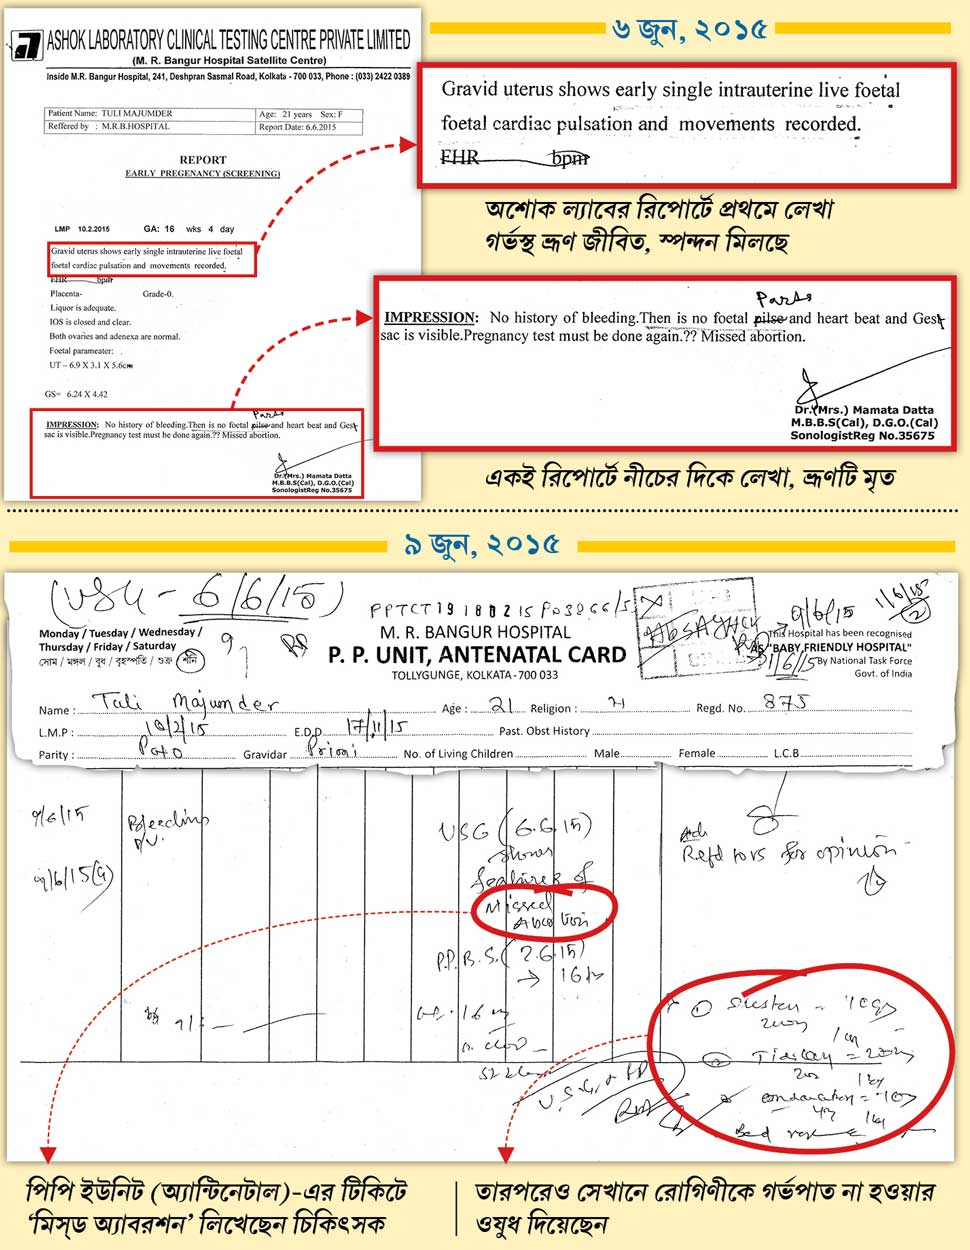 ৬ জুন, ২০১৫
ASHOK LABORATORY CLINICAL TESTING CENTRE PRIVATE LIMITED
(M. R. Bangur Hospital Satellite Centre)
Inside M.R. Bangur Hospital, 241, Deshpran Sasmal Road, Kolkata - 700 033, Phone : (033) 2422 0389
Patient Name: TULI MAJUMDER Age: 21 years Sex: F
Reffered by : M.R.B.HOSPITAL Report Date: 6.6.2015
REPORT
EARLY PREGENANCY (SCREENING)
LMP 10.2.2015 GA: 16 wks 4 day
Gravid uterus shows early single intrauterine live foetal
foetal cardiac pulsation and movements recorded.
FHR bpm
Placenta- Grade-0.
Liquor is adequate.
IOS is closed and clear.
Both ovaries and adnexa are normal.
Foetal parameater:
UT – 6.9 X 3.1 X 5.6cm
GS= 6.24 X 4.42
Parts
IMPRESSION: No history of bleeding.Then is no foetal pilse and heart beat and Gest
sac is visible.Pregnancy test must be done again.?? Missed abortion.
Dr.(Mrs.) Mamata Datta
M.B.B.S(Cal), D.G.O.(Cal)
SonologistReg No.35675
Gravid uterus shows early single intrauterine live foetal
foetal cardiac pulsation and movements recorded.
FHR bpm
অশোক ল্যাবের রিপোর্টে প্রথমে লেখা
গর্ভস্থ ভ্রূণ জীবিত, স্পন্দন মিলছে
Parts
IMPRESSION: No history of bleeding.Then is no foetal pilse and heart beat and Gest
sac is visible.Pregnancy test must be done again.?? Missed abortion.
Dr.(Mrs.) Mamata Datta
M.B.B.S(Cal), D.G.O.(Cal)
SonologistReg No.35675
একই রিপোর্টে নীচের দিকে লেখা, ভ্রূণটি মৃত
৯ জুন, ২০১৫
(USG - 6/6/15)
9/6/15
Monday / Tuesday / Wednesday /
Thursday / Friday / Saturday
সোম / মঙ্গল / বুধ / বৃহস্পতি / শুক্র শনি
M. R. BANGUR HOSPITAL
P. P. UNIT, ANTENATAL CARD
TOLLYGUNGE, KOLKATA-700 033
This Hospital has been recognised
AS "BABY FRIENDLY HOSPITAL"
By National Task Force
Govt. of India
Name : Tuli Majumder Age : 21 Religion : H Regd. No. 875
L.M.P : 10/2/15 E.D.D 17/11/15 Past. Obst History
Parity : P0+0 Gravidar Primi No. of Living Children Male Female L.C.B.
9/6/15 Bleeding P/V.
9/6/15
USG (6.6.15)
shows
features of
Missed
Abortion
P.P.B.S. (2.6.15)
Adv
Refd to VS for opinion
পিপি ইউনিট (অ্যান্টিনেটাল)-এর টিকিটে
‘মিস্‌ড অ্যাবরশন’ লিখেছেন চিকিৎসক
তারপরেও সেখানে রোগিণীকে গর্ভপাত না হওয়ার
ওষুধ দিয়েছেন